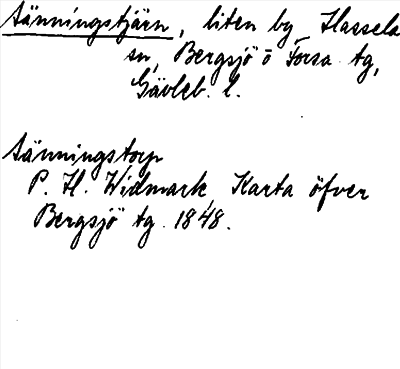 Känningstjärn, liten by Hassela
sn, Bergsjö o Forsa tg,
Gävleb. l.
Känningstorp
P. H. Widmark, Karta öfver
Bergsjö tg. 1848.